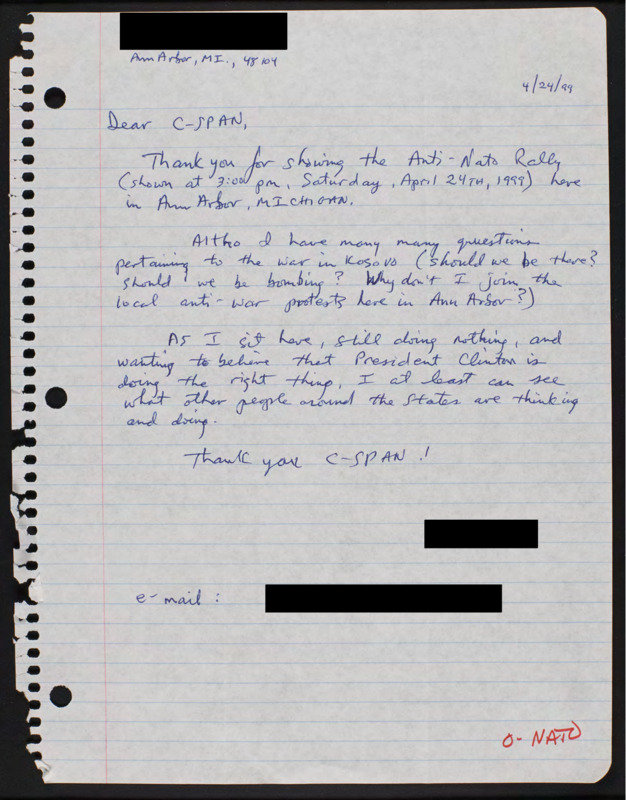 Ann Arbor, MI., 48104
4/24/99
Dear C-SPAN,
Thank you for showing the Anti-Nato Rally
(shown at 3:00 pm, Saturday, April 24TH, 1999) here
in Ann Arbor, MICHIGAN.
Altho I have many many questions
pertaining to the war in Kosovo (should we be there?
should we be bombing? Why don't I join the
local anti-war protests here in Ann Arbor?)
As I sit here, still doing nothing, and
wanting to believe that President Clinton is
doing the right thing, I at least can see
what other people around the states are thinking
and doing.
Thank you C-SPAN!
e-mail:
O-NATO